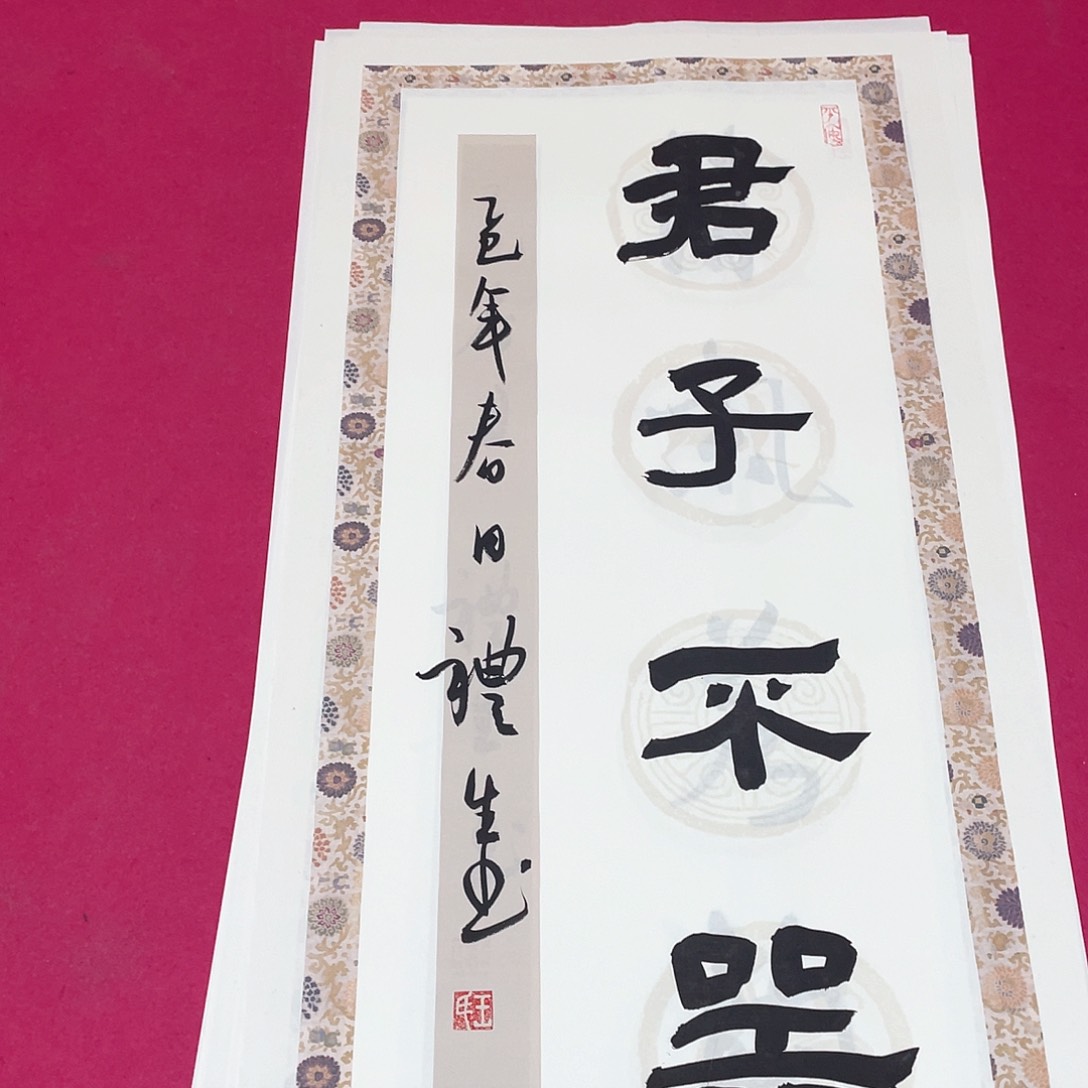 君子不器
乙巳年春日禮生書